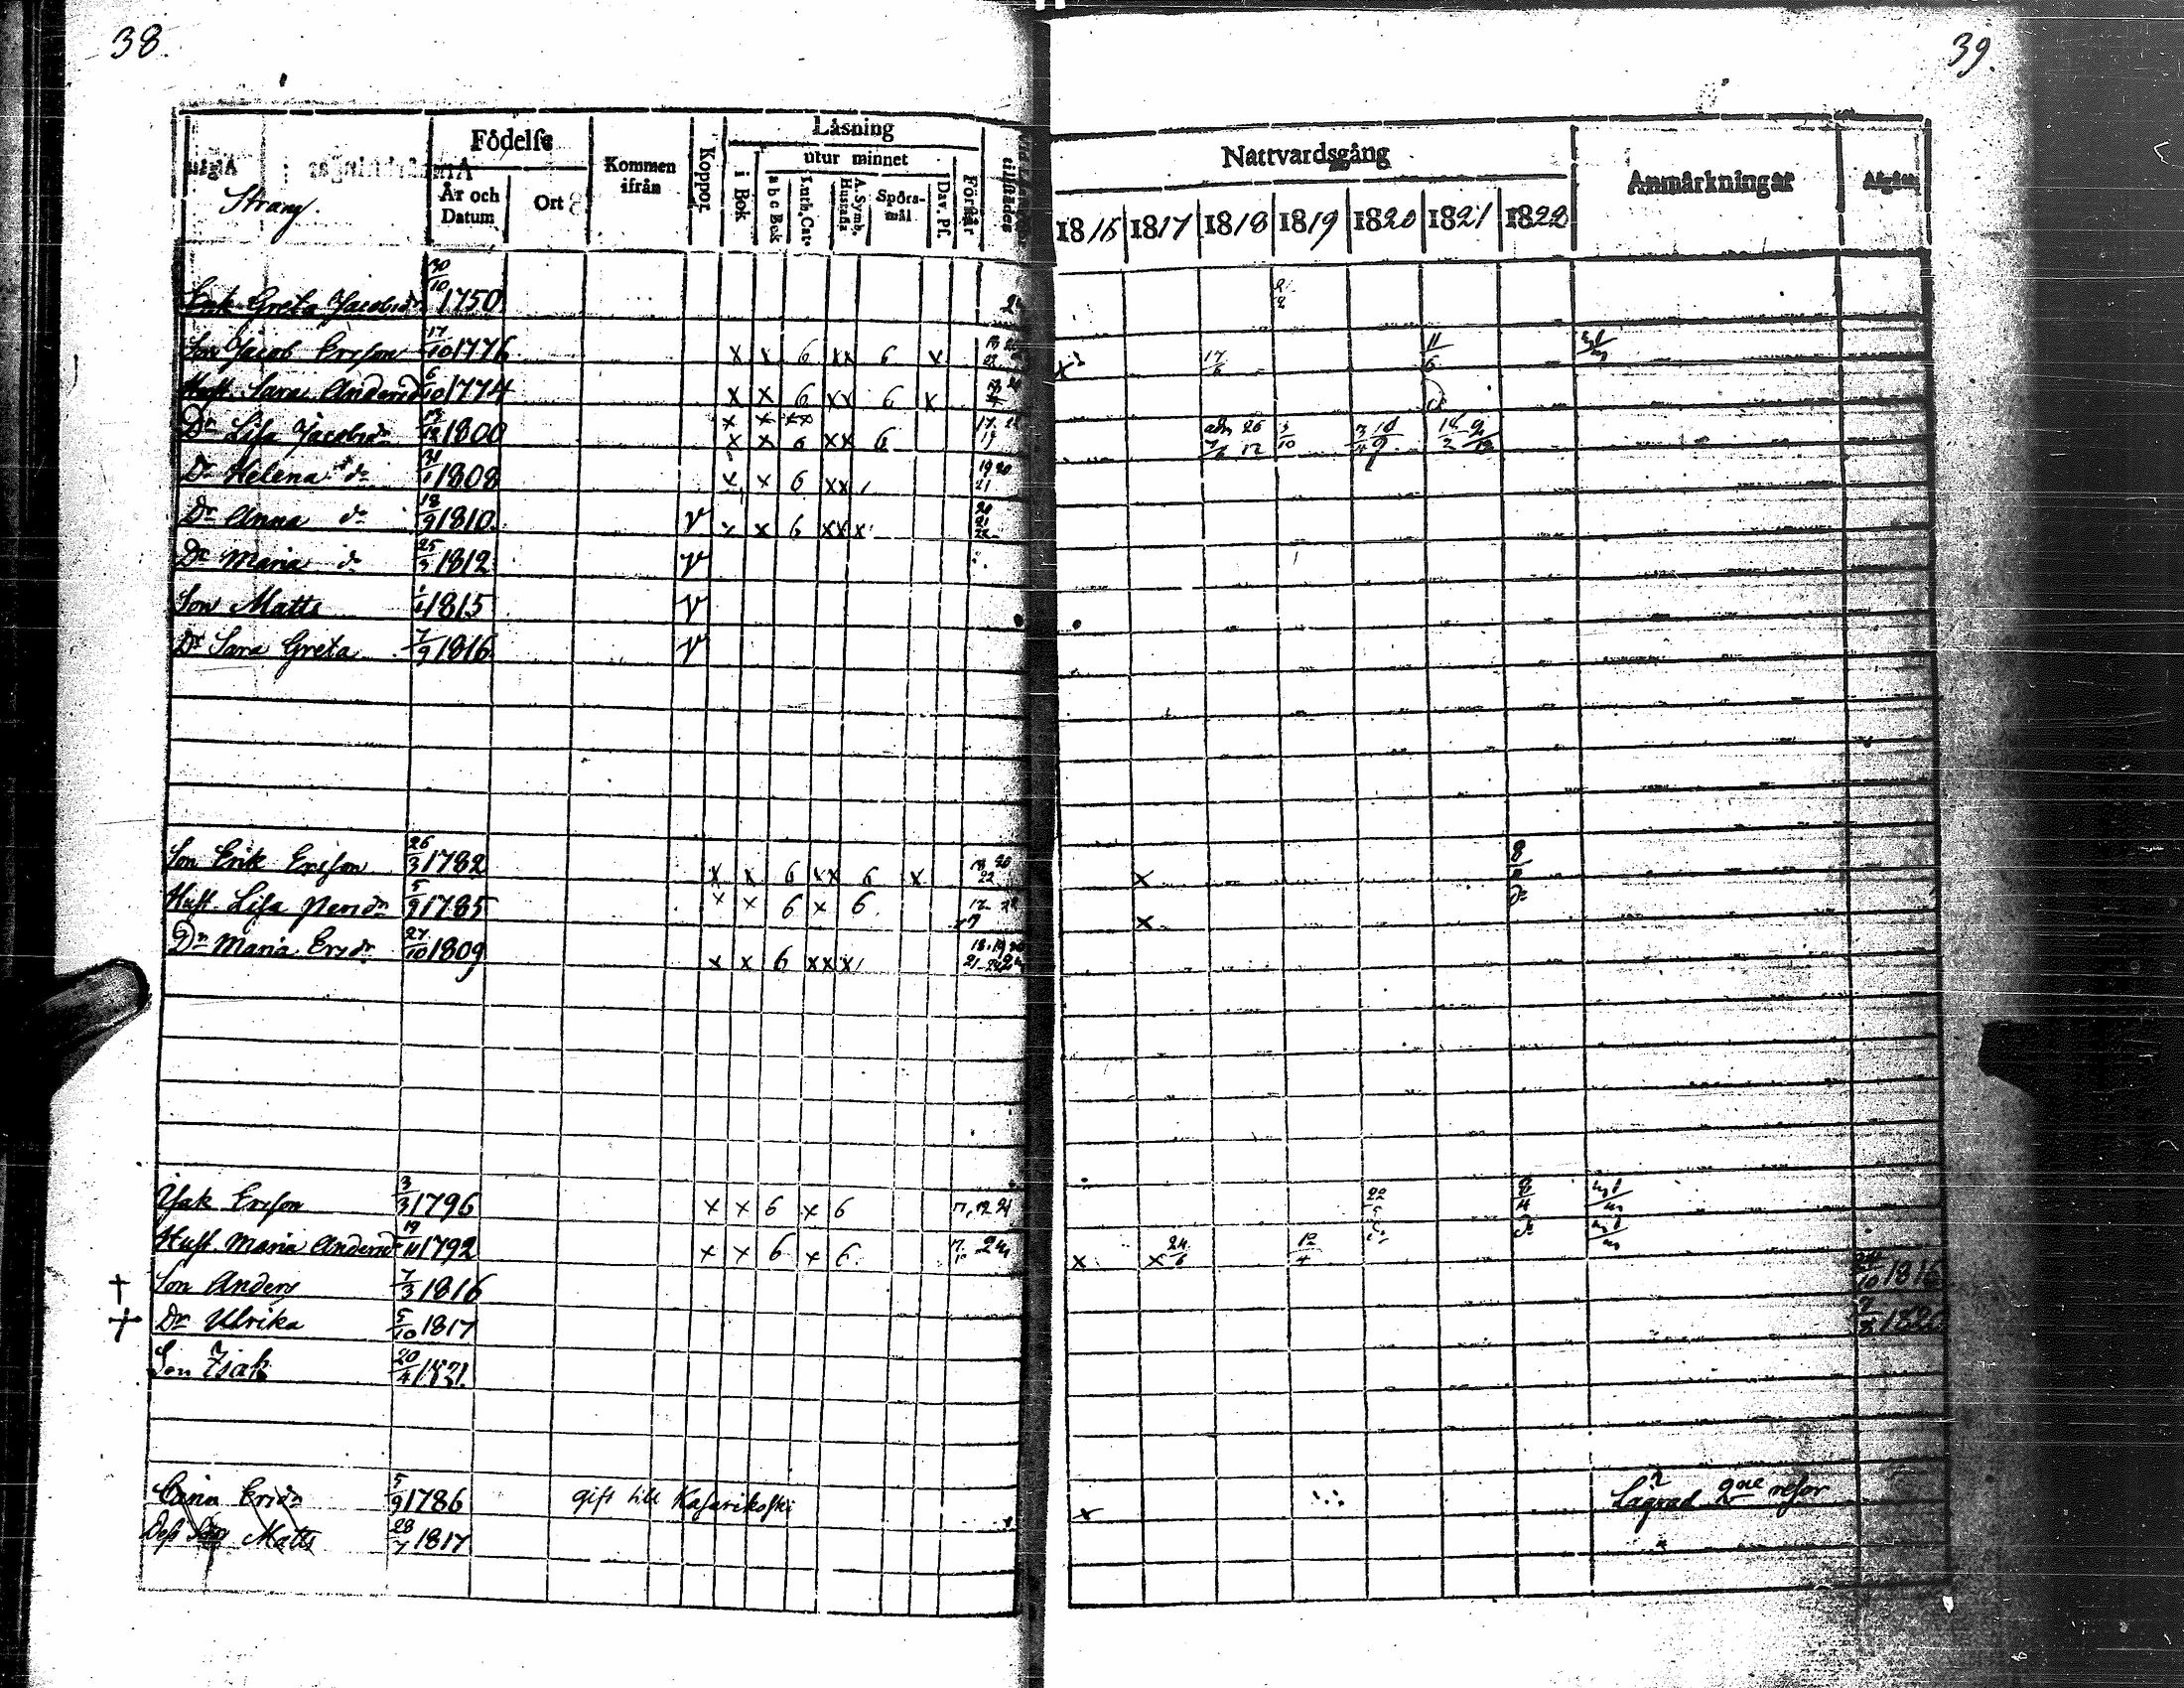 38.
39.
Födelse
Läsning
utur minnet
Kommen ifrån
Koppor
År och Datum
Ort
i Bok
a b c Bok
Luth. Cat.
A. Symb. Hustafla
Spörs-mål
Dav. Ps.
Förstår
Nattvardsgång
Anmärkningar
Afgått
Strang.
1816 1817 1818 1819 1820 1821 1822
Enk. Greta Jacobsdr 30/10 1750
Son Jacob Ersson 17/10 1776 x x 6 xx 6 x 17/6 11/6
Hust. Sara Andersdr 6/10 1774 x x 6 xx 6 x
x x xx
Dr Lisa Jacobsdr 13/12 1800 x x 6 xx 6
Dr Helena do 31/1 1808 x x 6 xx 19 20 21
Dr Anna do 18/9 1810 v x x 6 xxx 20 21 22
Dr Maria do 25/3 1812 v
Son Matts 1/1 1815 v
Dr Sara Greta 7/9 1816 v
Son Erik Ersson 26/3 1782 x x 6 xx 6 x x
Hust. Lisa Persdr 5/9 1785 x x 6 x 6 x
Dr Maria Ersdr 27/10 1809 x x 6 xxx
Isak Ersson 3/3 1796 x x 6 x 6
Hust. Maria Andersdr 19/11 1792 x x 6 x 6 x x 24/6 12/4
† Son Anders 7/3 1816 1816
† Dr Ulrika 5/10 1817
Son Isak 20/4 1821.
Carin Ersdr 5/9 1786 gift till Kasarikoski x Lägrad 2ne resor
Dess Son Matts 28/7 1817